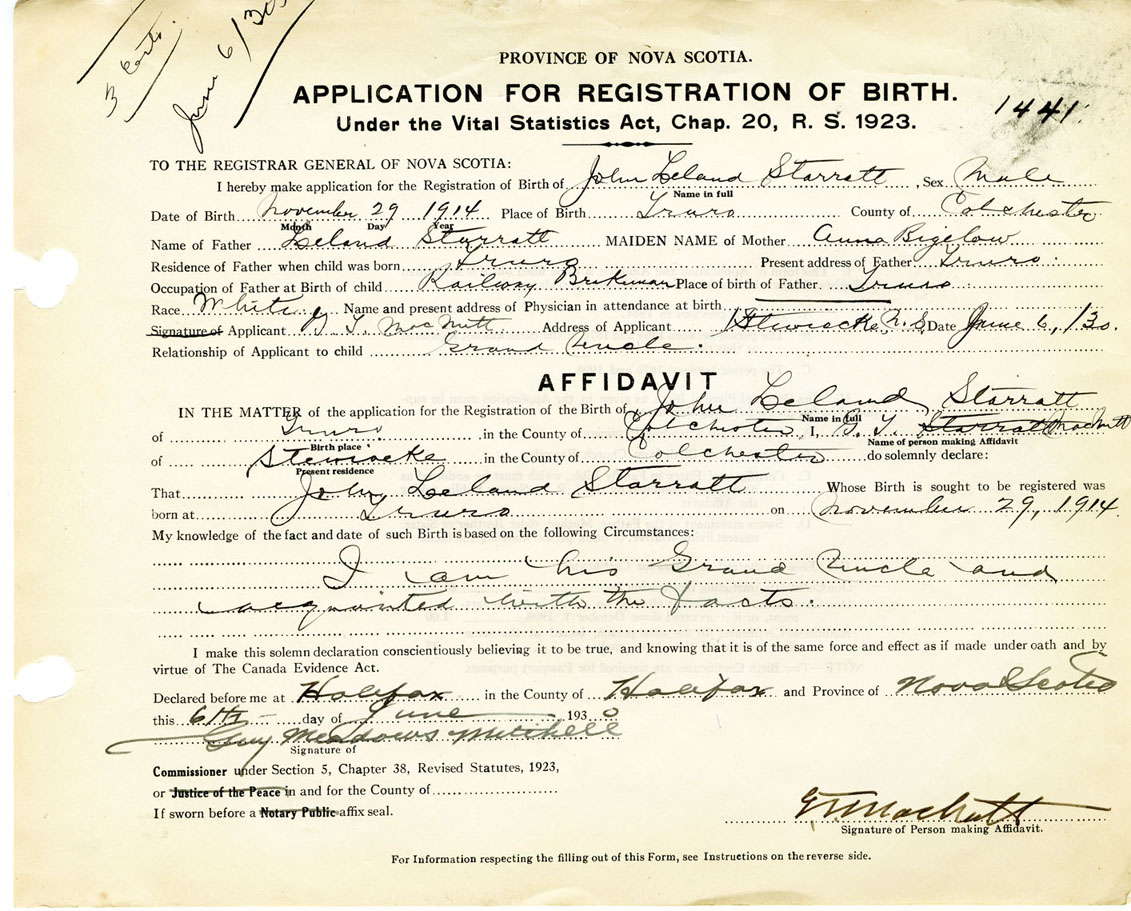 3 Certs.
June 6/30
PROVINCE OF NOVA SCOTIA.
APPLICATION FOR REGISTRATION OF BIRTH.
1441
Under the Vital Statistics Act, Chap. 20, R. S. 1923.
TO THE REGISTRAR GENERAL OF NOVA SCOTIA:
I hereby make application for the Registration of Birth of John Leland Starratt, Sex Male
Name in full
Date of Birth November 29 1914 Place of Birth Truro County of Colchester
Month Day Year
Name of Father Leland Starratt MAIDEN NAME of Mother Anna Bigelow
Residence of Father when child was born Truro Present address of Father Truro.
Occupation of Father at Birth of child Railway Brakeman Place of birth of Father Truro
Race White Name and present address of Physician in attendance at birth
Signature of Applicant G. T. MacNutt Address of Applicant Stewiacke, N.S. Date June 6, /30.
Relationship of Applicant to child Grand Uncle.
AFFIDAVIT
IN THE MATTER of the application for the Registration of the Birth of John Leland Starratt
Name in full
of Truro in the County of Colchester I, G. T. Starratt MacNutt
Birth place Name of person making Affidavit
of Stewiacke in the County of Colchester do solemnly declare:
Present residence
That John Leland Starratt Whose Birth is sought to be registered was
born at Truro on November 29, 1914.
My knowledge of the fact and date of such Birth is based on the following Circumstances:
I am his Grand Uncle and
acquainted with the facts.
I make this solemn declaration conscientiously believing it to be true, and knowing that it is of the same force and effect as if made under oath and by
virtue of The Canada Evidence Act.
Declared before me at Halifax in the County of Halifax and Province of Nova Scotia
this 6th day of June 1930
Guy Meadows Mitchell
Signature of
Commissioner under Section 5, Chapter 38, Revised Statutes, 1923,
or Justice of the Peace in and for the County of
If sworn before a Notary Public affix seal.
G T MacNutt
Signature of Person making Affidavit.
For Information respecting the filling out of this Form, see Instructions on the reverse side.